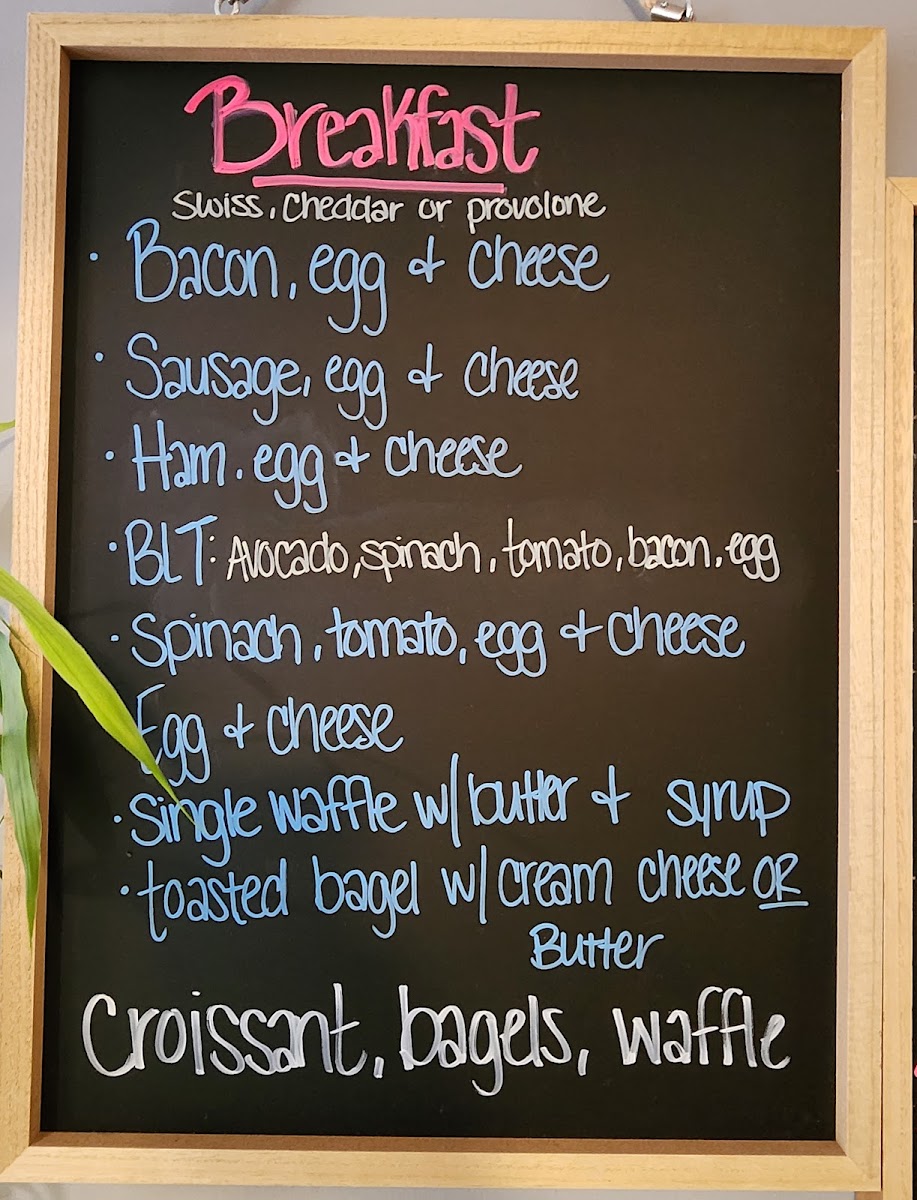 Breakfast
Swiss, Cheddar or provolone
· Bacon, egg & cheese
· Sausage, egg & cheese
· Ham, egg & cheese
· BLT: Avocado, spinach, tomato, bacon, egg
· Spinach, tomato, egg & cheese
Egg & cheese
· Single waffle w/ butter & syrup
· toasted bagel w/ cream cheese OR
Butter
Croissant, bagels, waffle